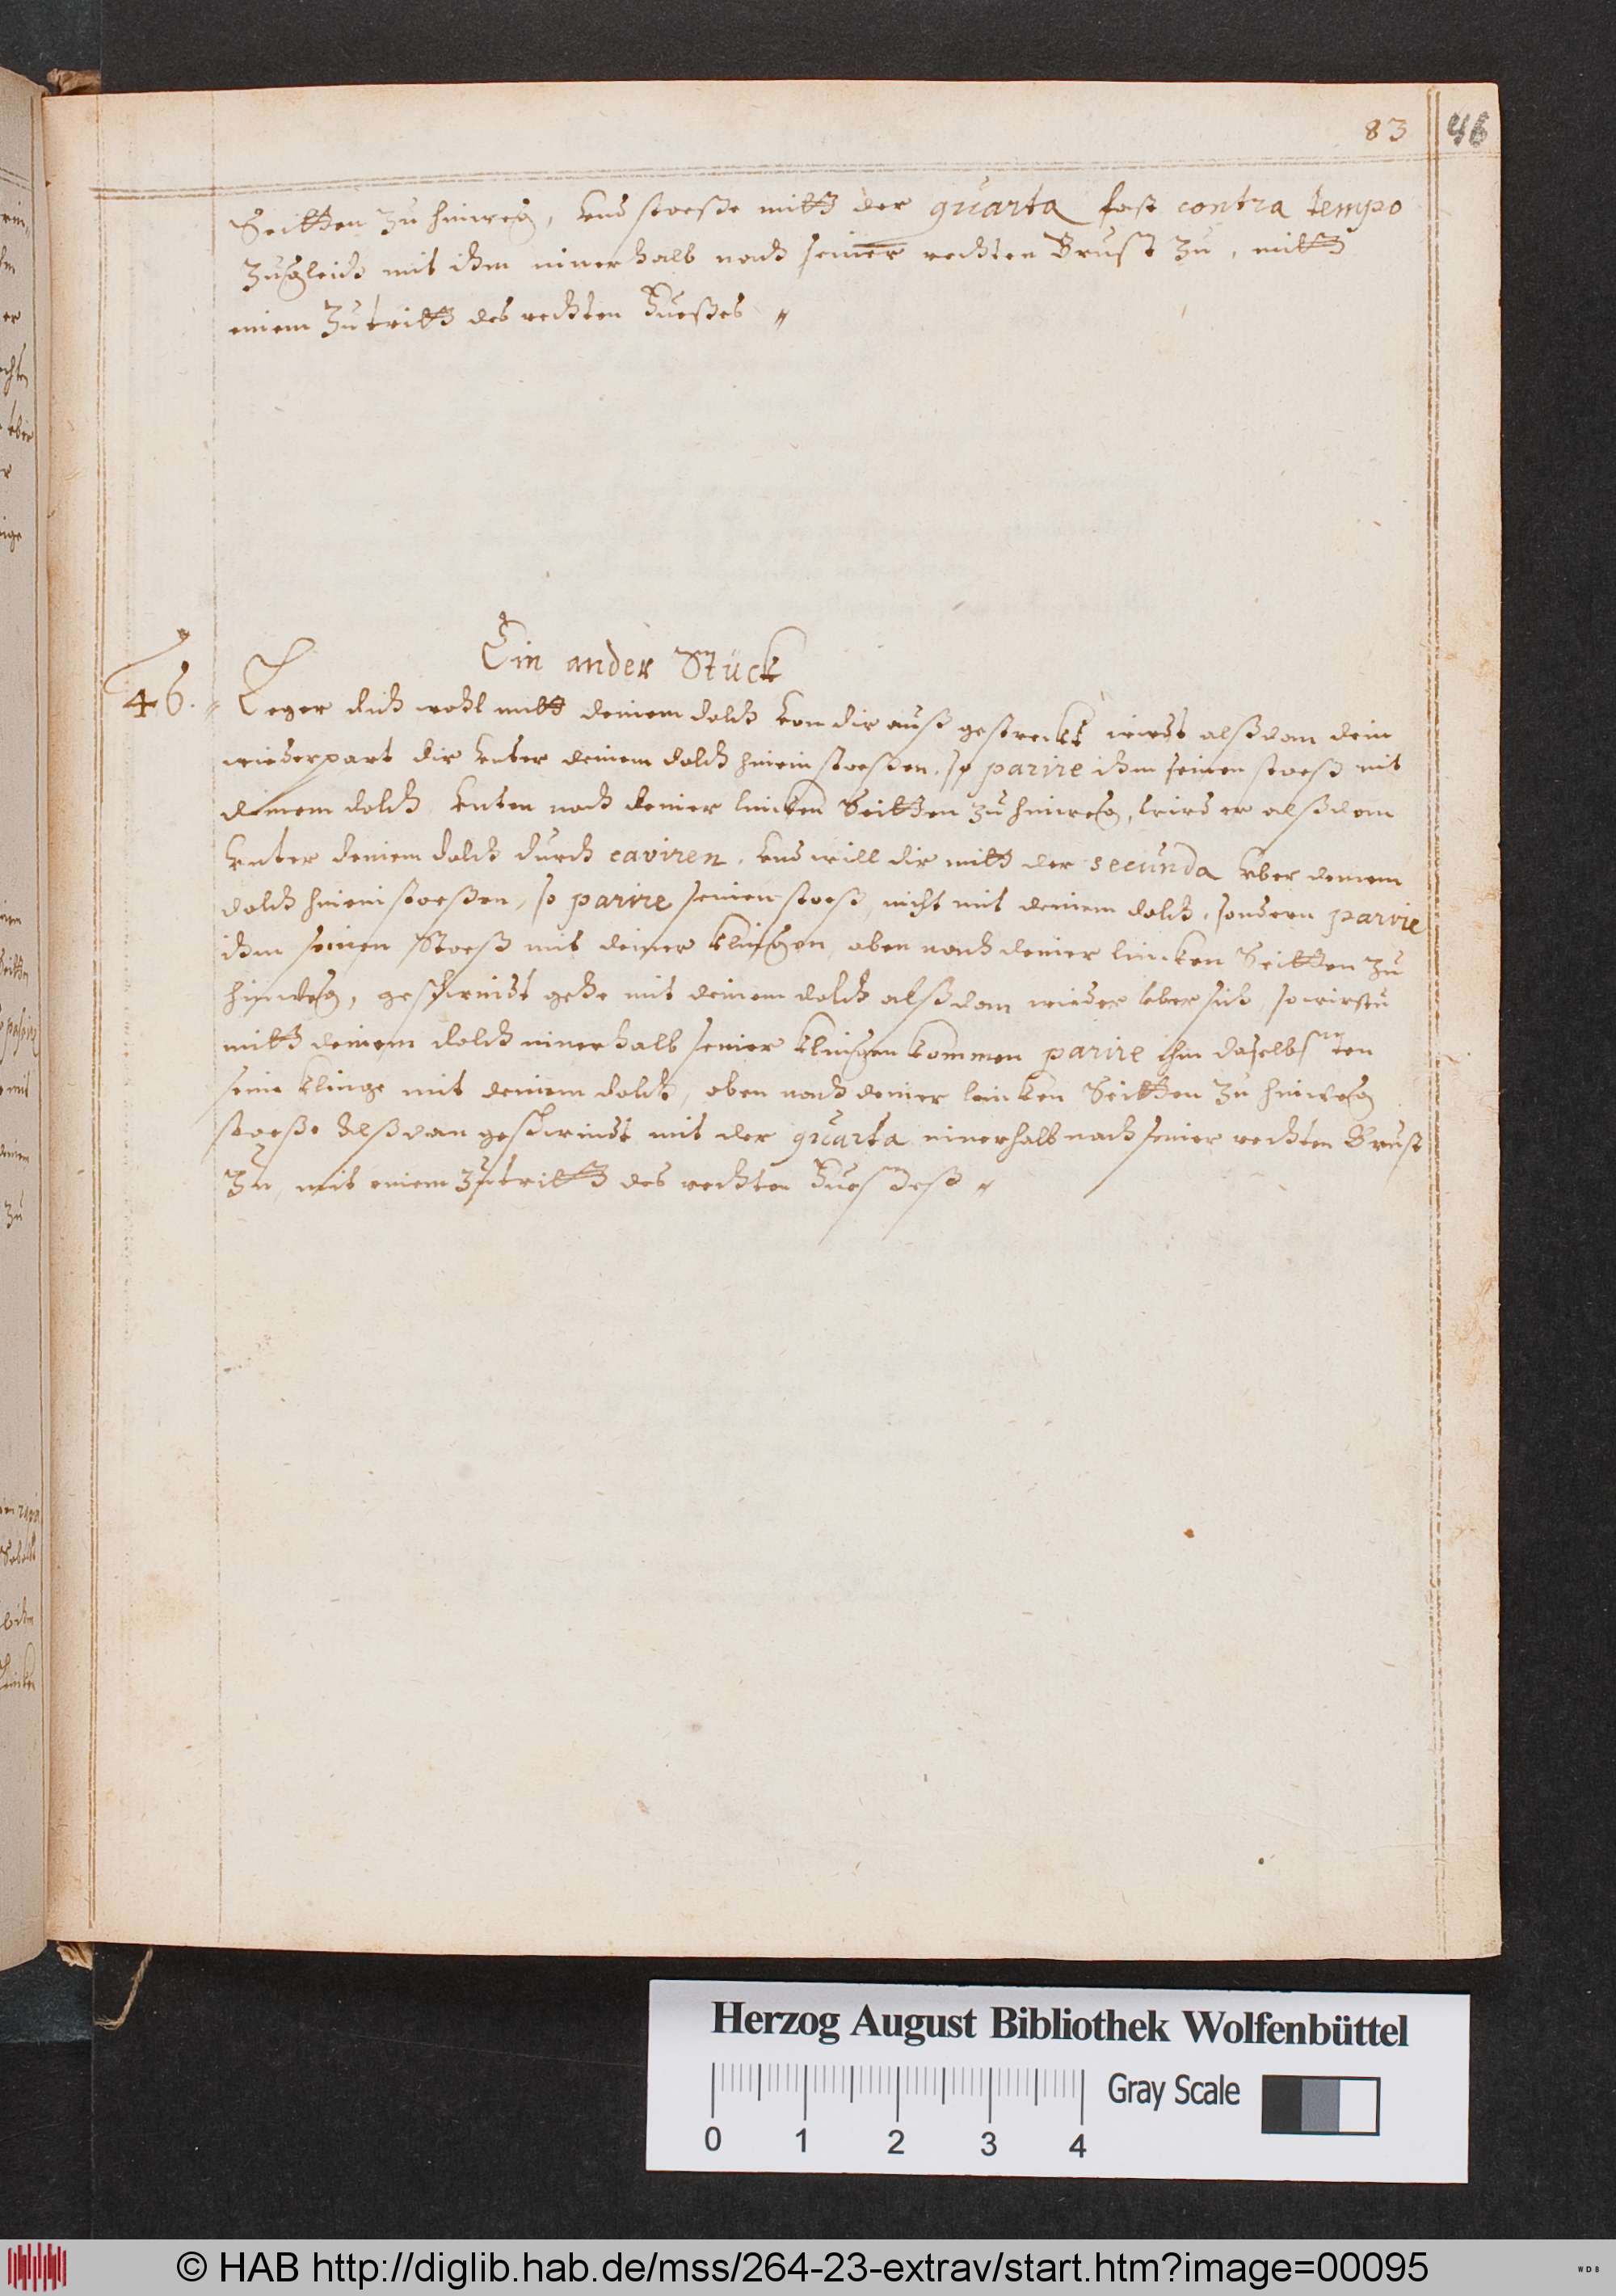 83
46
Seitten zu hinweg, vnd stoeße mitt der quarta fast contra tempo
zugleich mit ihm innerhalb nach seiner rechten Brust zu, mitt
einem Zutritt des rechten Fueßes „
Ein ander Stück
46. Leger dich wohl mitt deinem dolch von dir auß gestreckt wirdt alßdan dein
wiederpart dir vnter deinem dolch hinein stoeßen, so parire ihm seinen stoeß mit
deinem dolch vnten nach deiner lincken Seitten zu hinweg, wird er alßdan
vnter deinem dolch durch caviren, vnd will dir mitt der secunda vber deinem
dolch hinein stoeßen, so parire seinen stoeß, nicht mit deinem dolch, sondern parire
ihm seinen Stoeß mit deiner klingen, oben nach deiner lincken Seitten zu
hinweg, geschwindt gehe mit deinem dolch alßdan wieder vber sich, so wirstu
mitt deinem dolch innerhalb seiner klingen kommen parire ihm daselbsten
seine klinge mit deinem dolch, oben nach deiner lincken Seitten zu hinweg
stoeße alßdan geschwindt mit der quarta innerhalb nach seiner rechten Brust
zu, mit einem Zutritt des rechten
Herzog August Bibliothek Wolfenbüttel
Gray Scale
0 1 2 3 4
© HAB http://diglib.hab.de/mss/264-23-extrav/start.htm?image=00095